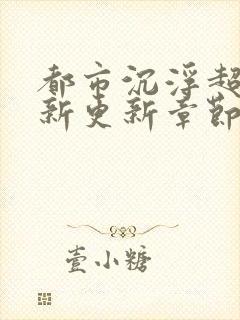 都市沉浮超
新更新章节
壹小糖